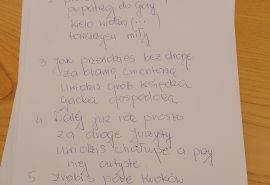 popatrzaj do góry
kielo widzis (...
towarzysu miły
3. Jak przendzies bez droge
za bramą cmentorną
Uwidzis grób księdza
gacka gospodorza
4 Dalej już idź prosto
za droge Turysty
Uwidzis chałupe a przy
niej artyste
5. Zrobis pare kroków